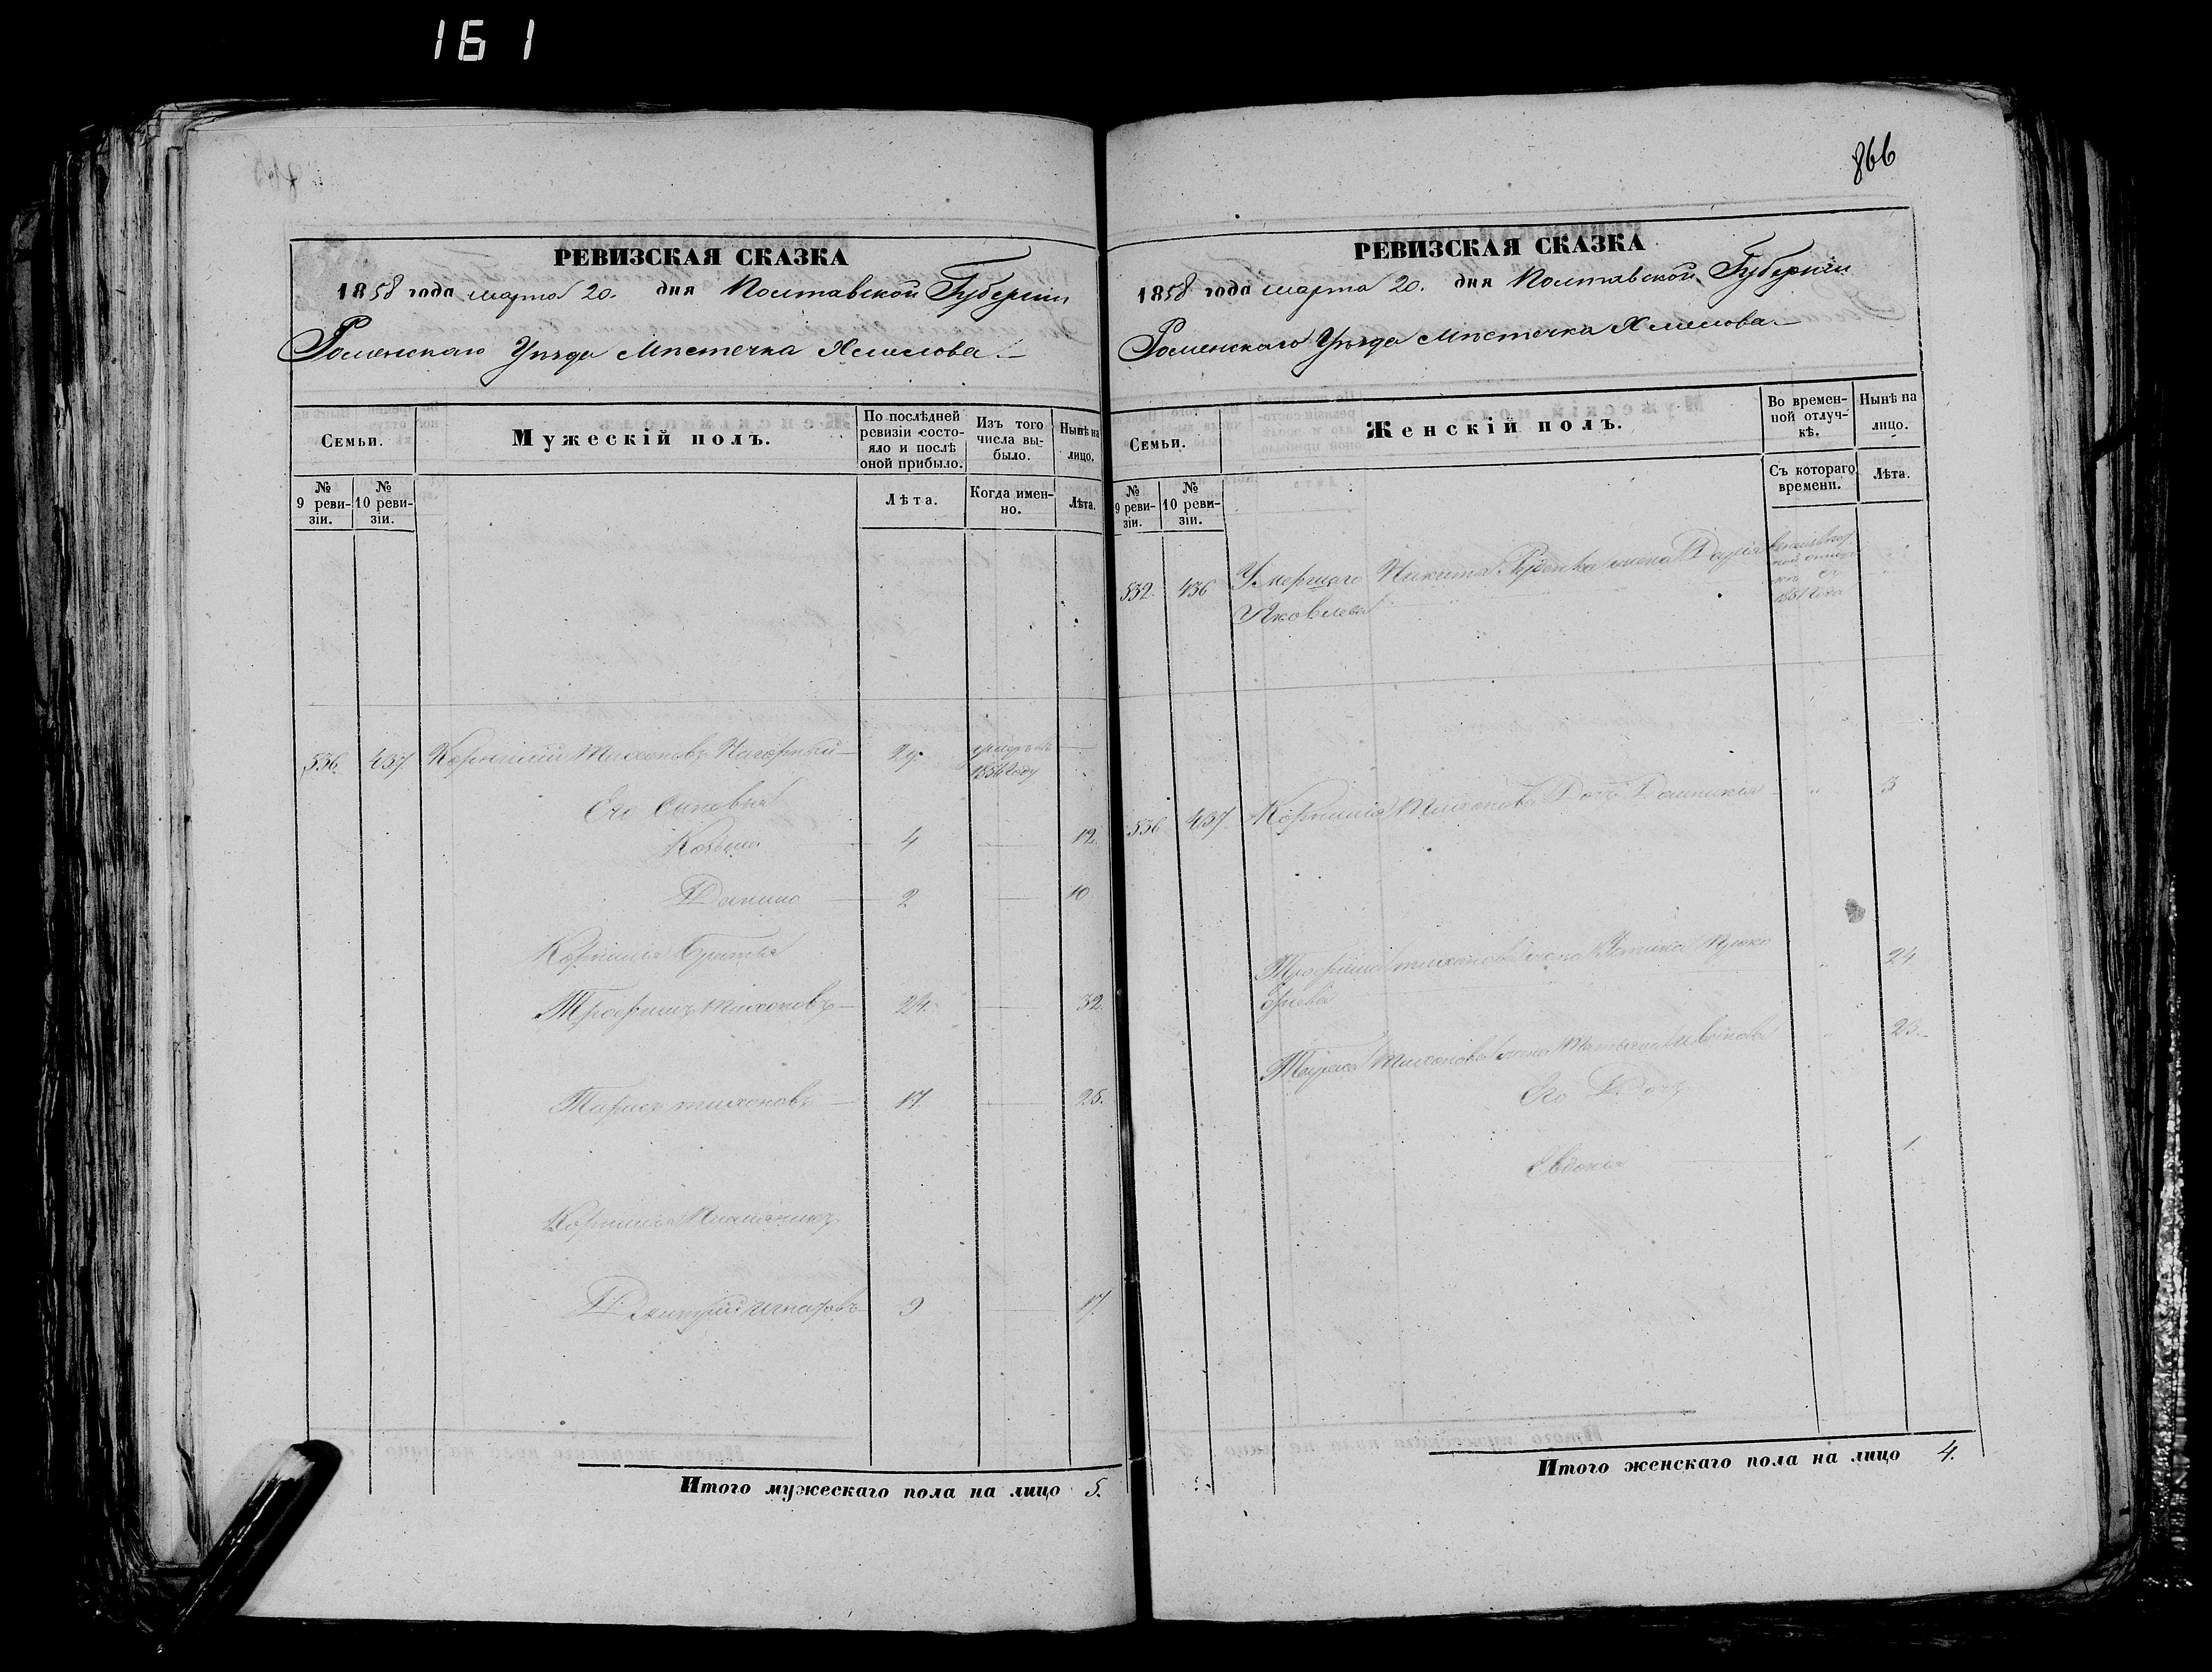 161
866
РЕВИЗСКАЯ СКАЗКА
1858 года марта 20. дня Полтавской Губерніи
Роменскаго Уѣзда Мѣстечка Хмелова.
Семьи.
Мужескій полъ.
По послѣдней ревизіи состояло и послѣ оной прибыло.
Изъ того числа выбыло.
Нынѣ на лицо.
№ 9 ревизіи.
№ 10 ревизіи.
Лѣта.
Когда именно.
Лѣта.
536. 437. Корнилій Тихоновъ Нагорный 29.
1856 году
Его Сыновья
Козьма 4 12.
Данило 2 10
Корнилія Братья
Трофимъ Тихоновъ 24. 32.
Тарасъ Тихоновъ 17. 25.
Корнилія Племянникъ
Дмитрій Игнатовъ 9 17.
Итого мужескаго пола на лицо 5.
РЕВИЗСКАЯ СКАЗКА
1858 года марта 20. дня Полтавской Губерніи
Роменскаго Уѣзда Мѣстечка Хмелова
Семьи.
Женскій полъ.
Во временной отлучкѣ.
Нынѣ на лицо.
№ 9 ревизіи.
№ 10 ревизіи.
Съ котораго времени.
Лѣта.
532. 436 Умершаго Никиты жена Дарія
Яковлева
1851 года
536 437. Корнилія Тихонова Дочь 3
Трофима Тихонова жена 24
Тараса Тихонова жена Татьяна Иванова 23.
Его Дочь
Евдокія 1.
Итого женскаго пола на лицо 4.